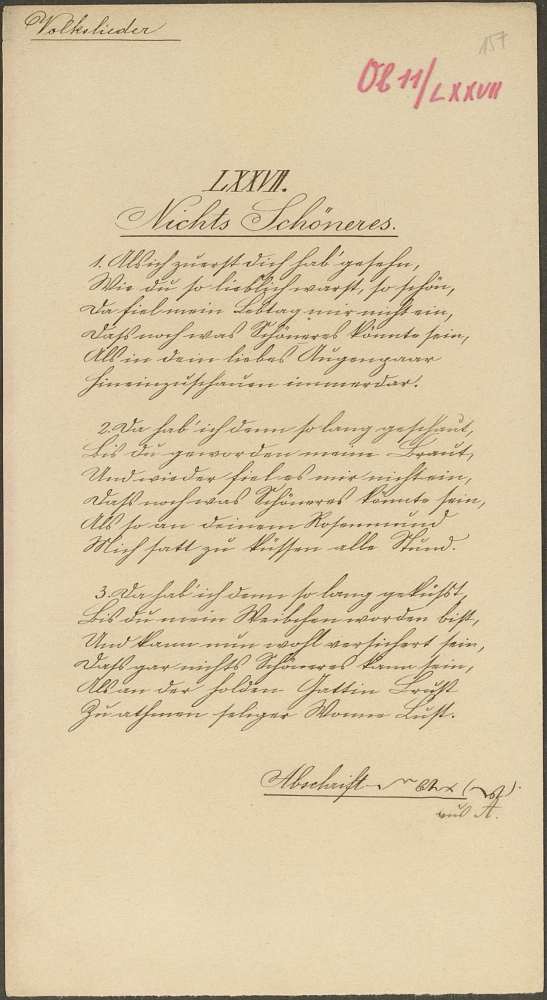 Volkslieder
157
Ob 11/LXXVII
LXXVII.
Nichts Schöneres.
1. Als ich zuerst dich hab' gesehn,
Wie du so lieblich warst, so schön,
Da fiel mein Lebtag mir nicht ein,
Daß noch was Schöneres könnte sein,
Als in dein liebes Augenpaar
hineinzuschauen immerdar.
2. Da hab' ich denn so lang geschaut,
Bis du geworden meine Braut,
Und wieder fiel es mir nicht ein,
Daß noch was Schöneres könnte sein,
Als so an deinem Rosenmund
Mich satt zu küssen alle Stund.
3. Da hab' ich denn so lang geküßt,
Bis du mein Weibchen worden bist,
Und kann nun wohl versichert sein,
Daß gar nichts Schöneres kann sein,
Als an der holden Gattin Brust
Zu athmen seliger Wonne Lust.
Abschrift
aus A.